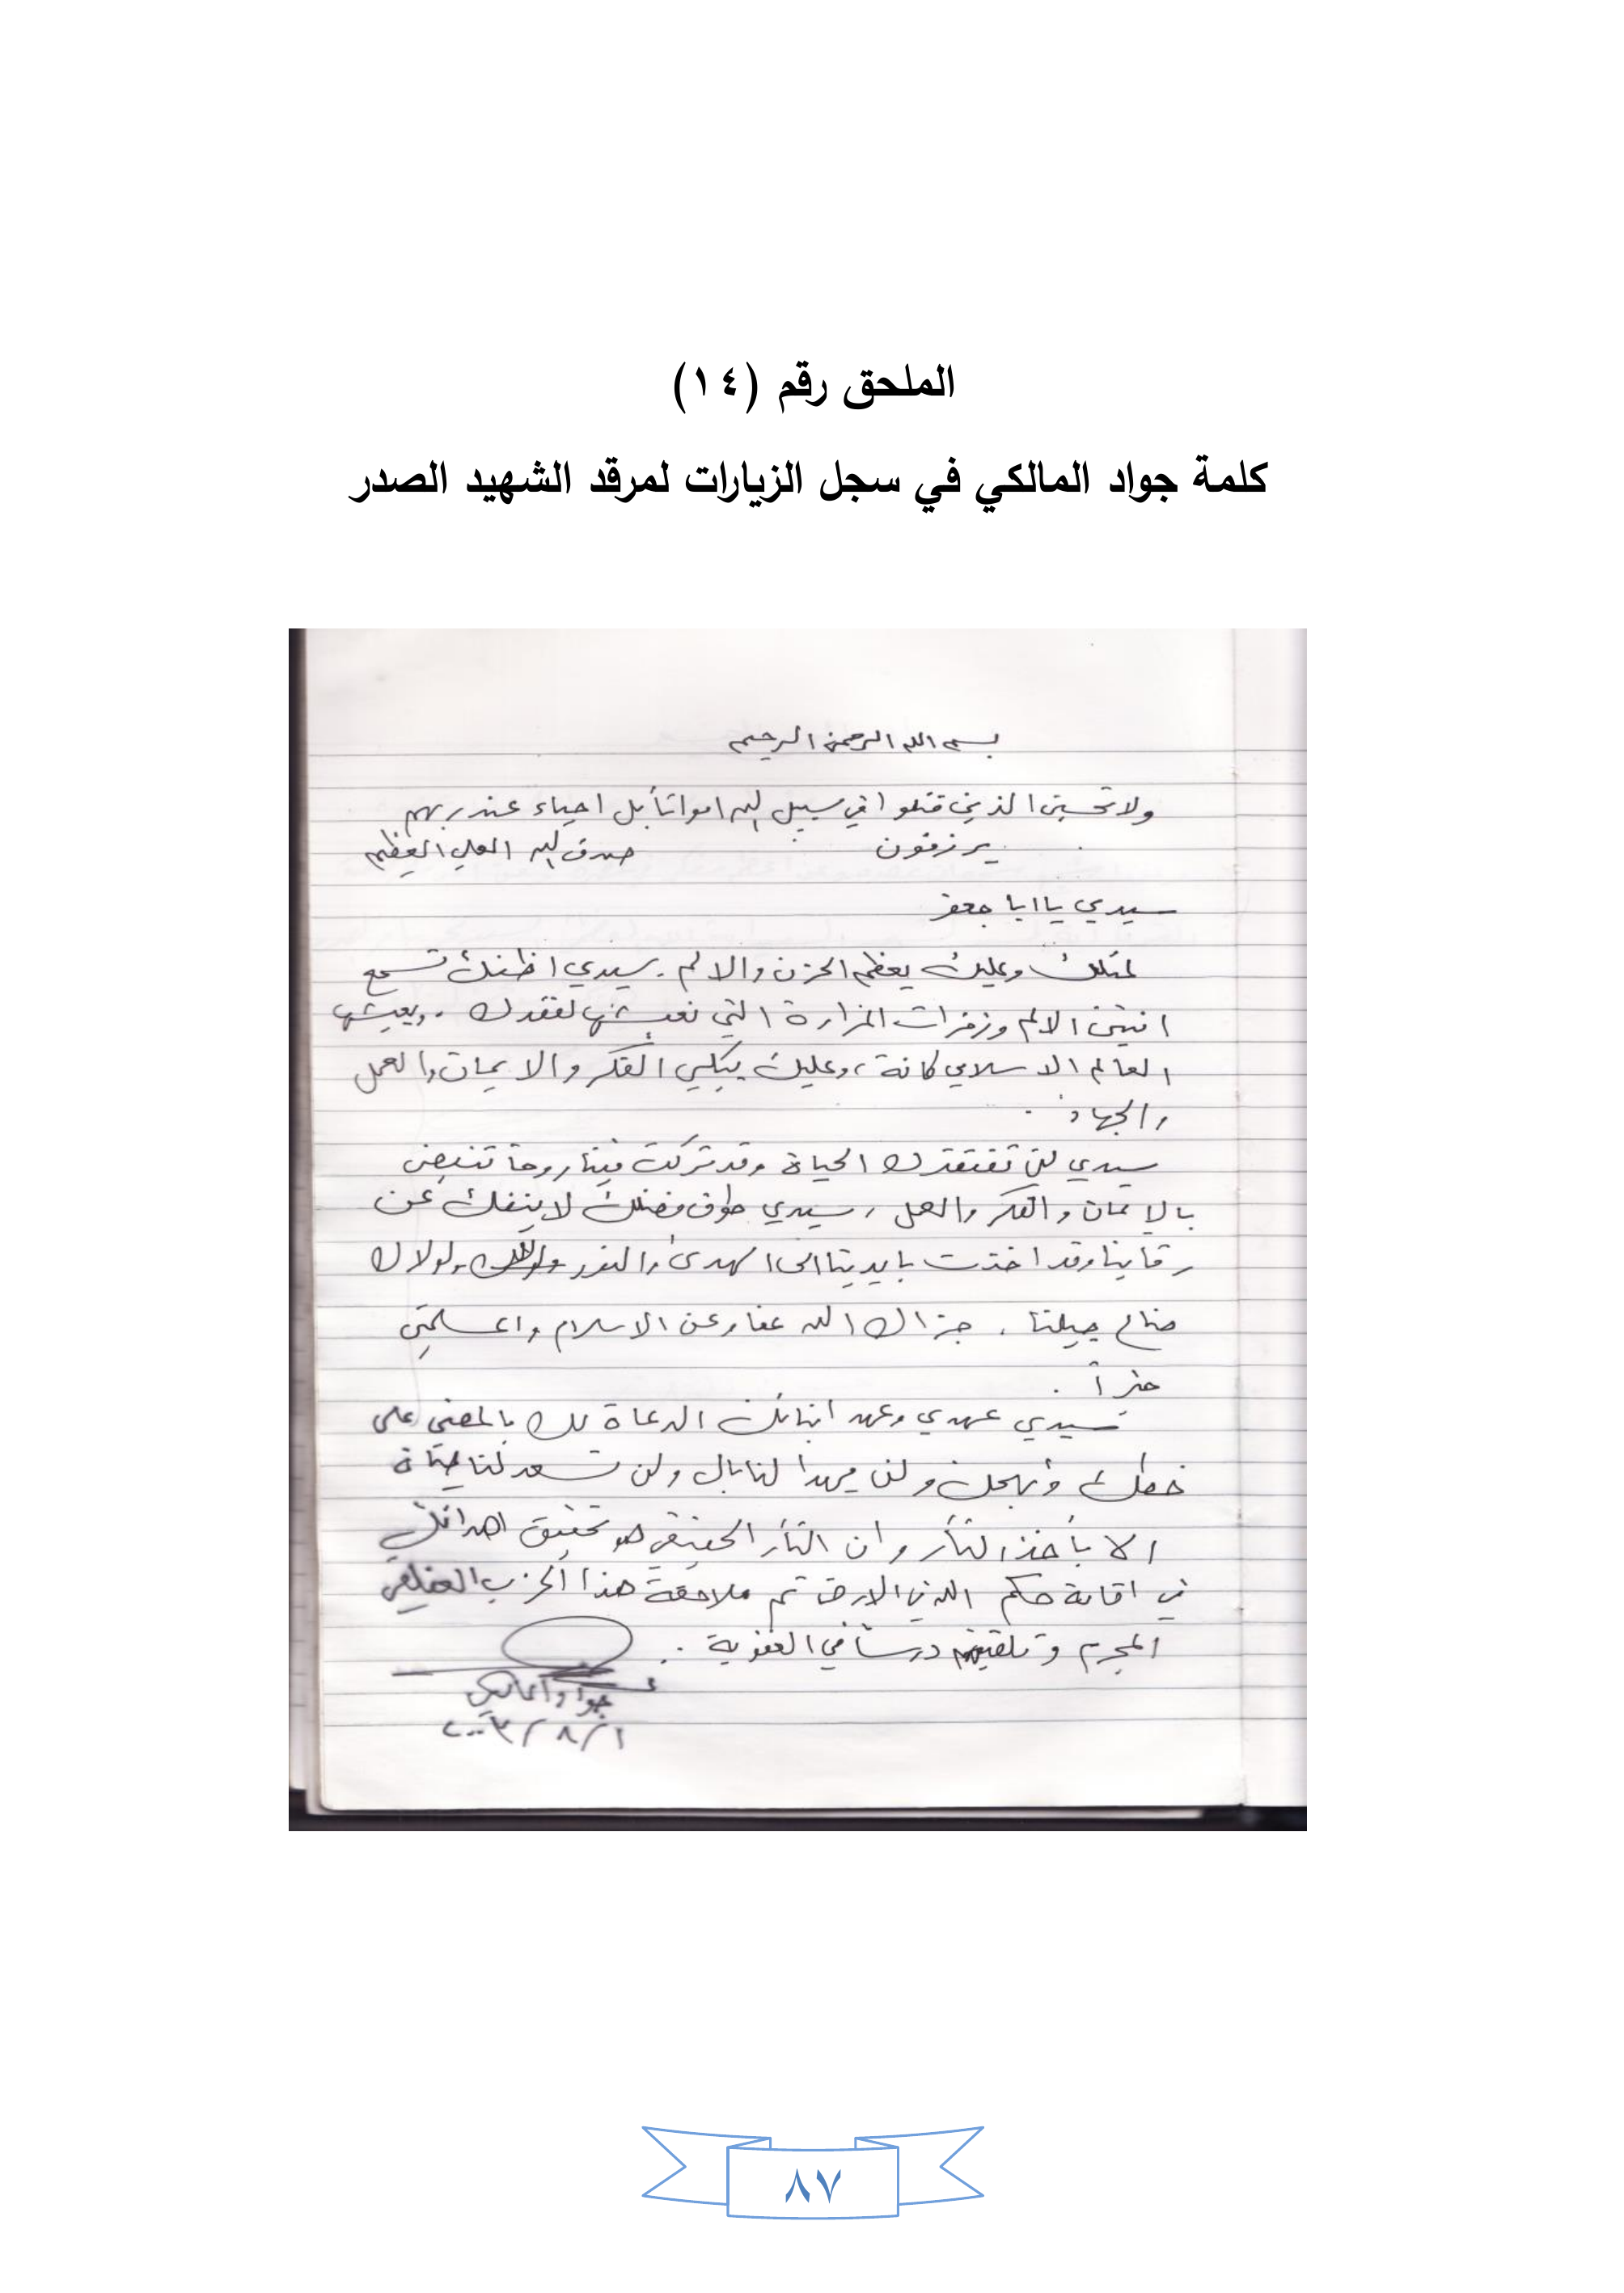 الملحق رقم (١٤)
كلمة جواد المالكي في سجل الزيارات لمرقد الشهيد الصدر
بسم الله الرحمن الرحيم
ولا تحسبن الذين قتلوا في سبيل الله امواتاً بل احياء عند ربهم
يرزقون صدق الله العلي العظيم
سيدي يا ابا جعفر
لمثلك وعليك يعظم الحزن والالم . سيدي اظنك تسمع
انين الالم وزفرات المرارة التي نعيشها لفقدك .. ويعيشها
العالم الاسلامي كافة ، وعليك يبكي الفكر والايمان والعمل
والجهاد .
سيدي لن تفتقدك الحياة وقد تركت فينا روحاً تنبض
بالايمان والفكر والعمل ، سيدي طوق فضلك لا ينفك عن
رقابنا وقد اخذت بايدينا الى الهدى والنور ولولاك
ضاع جيلنا . جزاك الله عنا وعن الاسلام والمسلمين
خيراً .
سيدي عهدي وعهد ابنائك الدعاة لك بالمضي على
خطك ونهجك ولن يهدأ لنا بال ولن تسعد لنا حياة
الا بأخذ الثأر وان الثأر الحقيقي هو تحقيق اهدافك
في اقامة حكم الله في الارض ثم ملاحقة هذا الحزب العفلقي
المجرم وتلقينهم درساً في العقوبة ..
جواد المالكي
٢٠٠٣/٨/١
٨٧